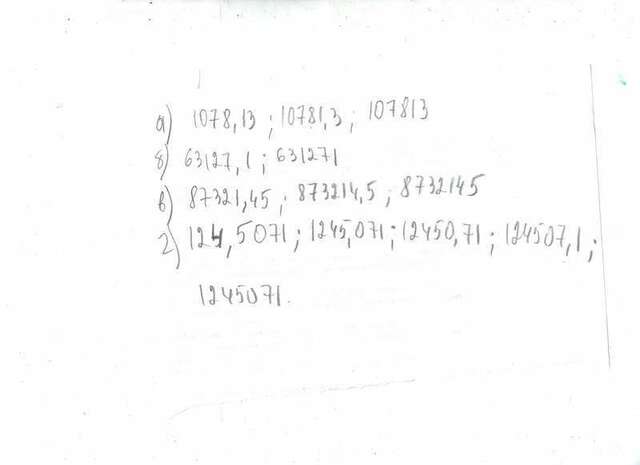 а) 1078,13 ; 10781,3 ; 107813
б) 63127,1 ; 631271
в) 87321,45 ; 873214,5 ; 8732145
г) 124,5071 ; 1245,071 ; 12450,71 ; 124507,1 ;
1245071.